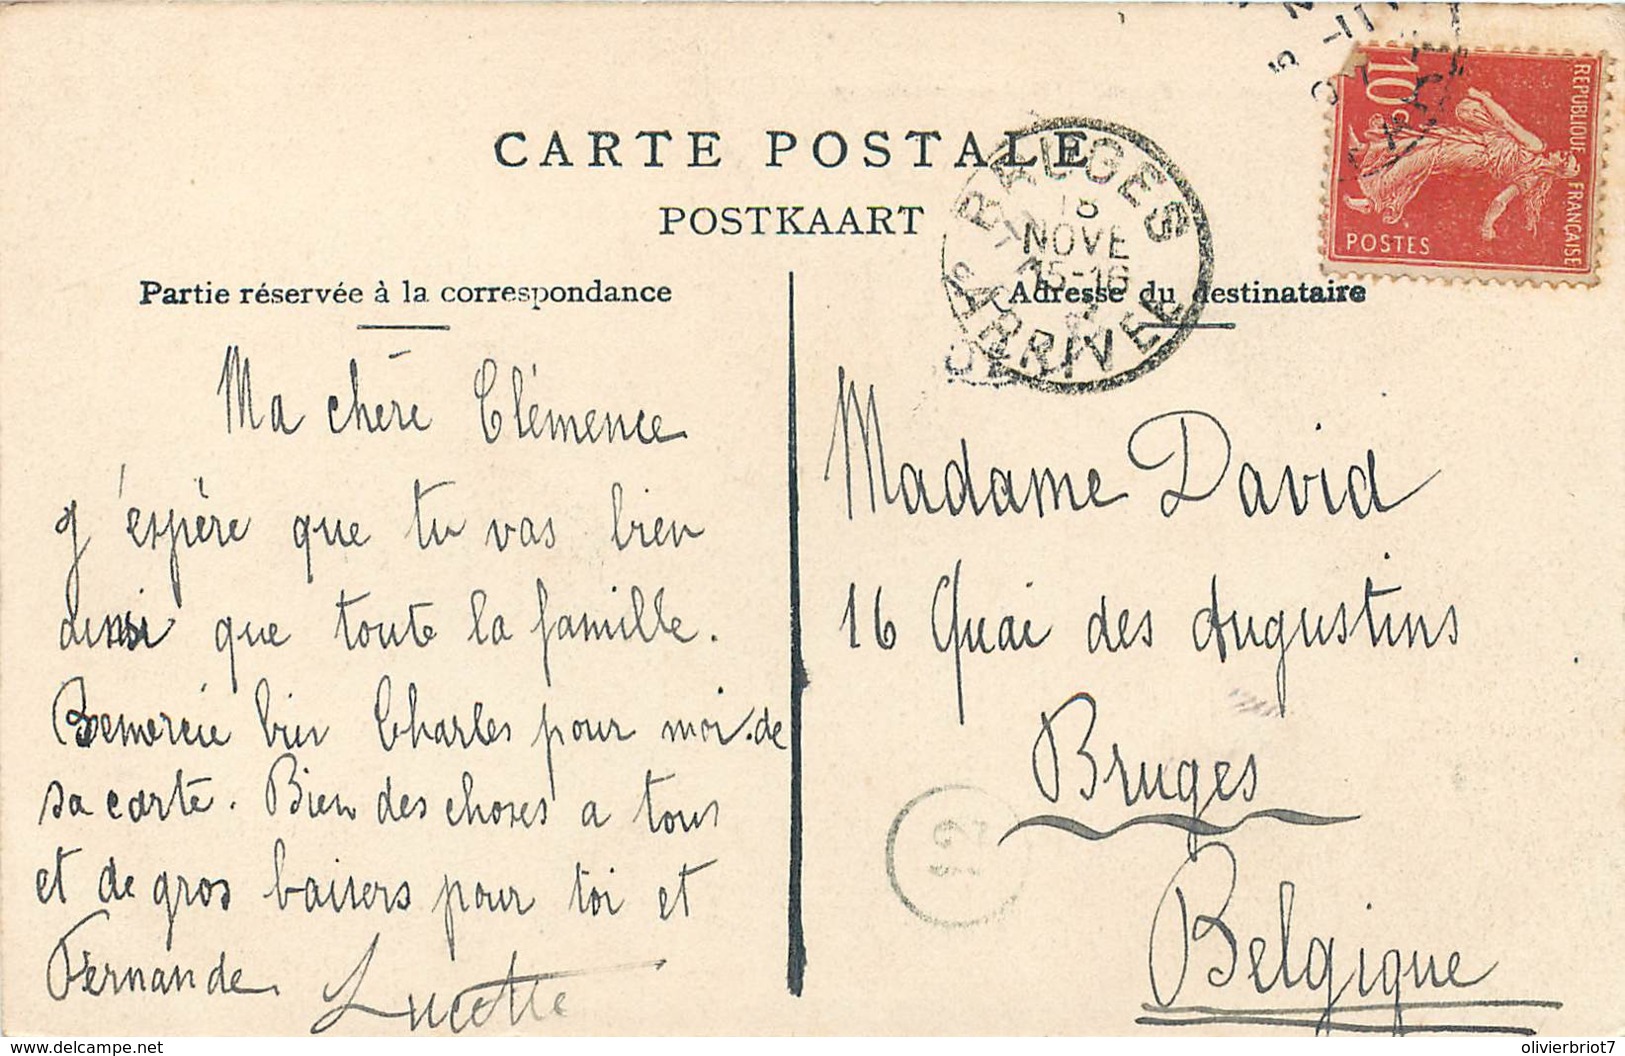 CARTE POSTALE
POSTKAART
Partie réservée à la correspondance
Adresse du destinataire
BRUGES
18
NOVE
15-16
ARRIVEE
10c
REPUBLIQUE FRANÇAISE
POSTES
Ma chère Clémence
J'espère que tu vas bien
ainsi que toute la famille.
Remercie bien Charles pour moi de
sa carte. Bien des choses a tous
et de gros baisers pour toi et
Fernande. Lucette
Madame David
16 Quai des Augustins
Bruges
Belgique
12
delcampe.net
olivierbriot7